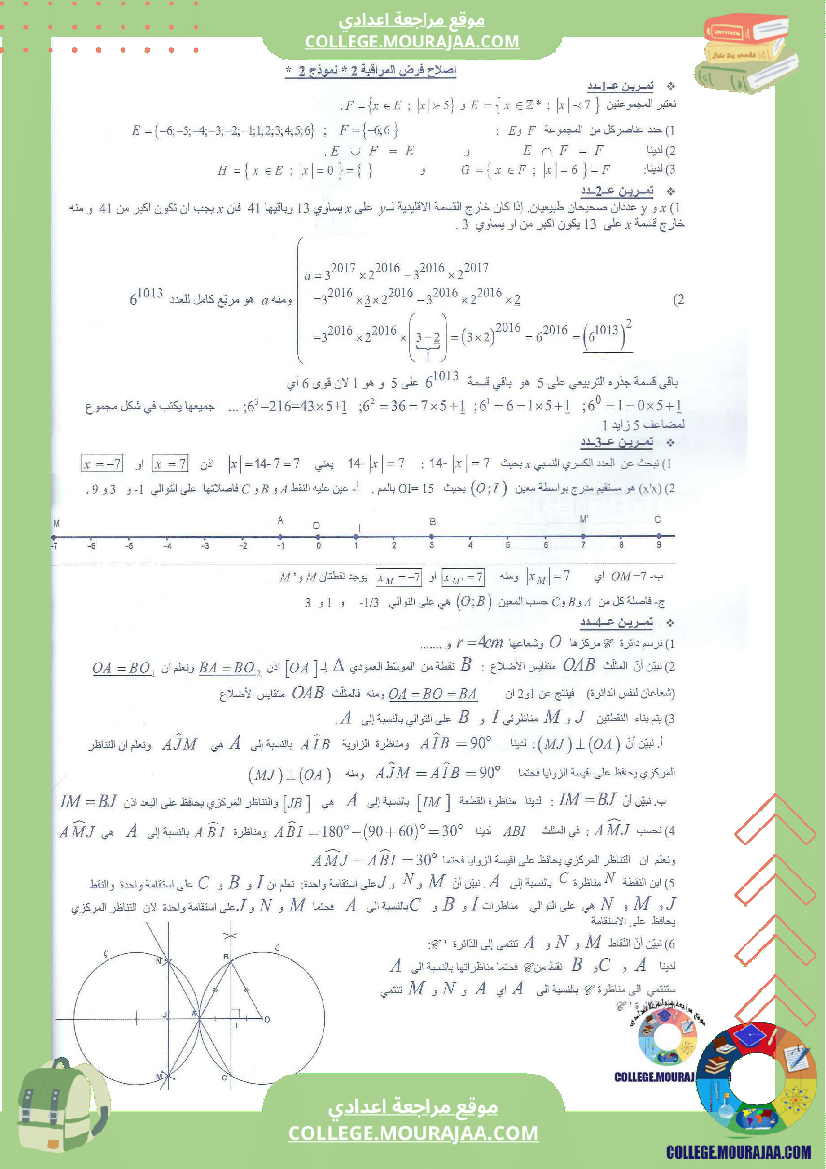 موقع مراجعة اعدادي
COLLEGE.MOURAJAA.COM
اصلاح فرض المراقبة 2 * نموذج 2 *
❖ تمرين عـ1ـدد
نعتبر المجموعتين E = { x ∈ ℤ* ; |x| < 7 } و F = { x ∈ E ; |x| > 5 } .
1) حدد عناصر كل من المجموعة F و E : E = {-6;-5;-4;-3;-2;-1;1;2;3;4;5;6} ; F = {-6;6}
2) لدينا E ∩ F = F و E ∪ F = E .
3) لدينا: G = { x ∈ F ; |x| = 6 } = F و H = { x ∈ E ; |x| = 0 } = { }
❖ تمرين عـ2ـدد
1) x و y عددان صحيحان طبيعيان. إذا كان خارج القسمة الاقليدية لـ y على x يساوي 13 وباقيها 41 فان x يجب ان تكون اكبر من 41 و منه
خارج قسمة x على 13 يكون اكبر من او يساوي 3 .
a = 3^2017 × 2^2016 - 3^2016 × 2^2017
2) = 3^2016 × 3 × 2^2016 - 3^2016 × 2^2016 × 2 ومنه a هو مربّع كامل للعدد 6^1013
= 3^2016 × 2^2016 × (3 - 2) = (3×2)^2016 = 6^2016 = (6^1013)^2
1
باقي قسمة جذره التربيعي على 5 هو باقي قسمة 6^1013 على 5 و هو 1 لان قوى 6 أي
6^0 = 1 = 0×5+1 ; 6^1 = 6 = 1×5+1 ; 6^2 = 36 = 7×5+1 ; 6^3 = 216 = 43×5+1 ; ... جميعها يكتب في شكل مجموع
لمضاعف 5 زايد 1
❖ تمرين عـ3ـدد
1) نبحث عن العدد الكسري النسبي x بحيث 14- |x| = 7 : 14- |x| = 7 يعني |x| = 14- 7 = 7 اذن x = 7 او x = -7
2) (x'x) هو مستقيم مدرج بواسطة معين (O;I) بحيث OI= 15 بالمم . أ- عين عليه النقط A و B و C فاصلاتها على التوالي 1- و 3 و 9 .
M A O I B M' C
-7 -6 -5 -4 -3 -2 -1 0 1 2 3 4 5 6 7 8 9
ب- OM = 7 اي |x_M| = 7 ومنه x_M' = 7 او x_M = -7 يوجد نقطتان M و M'
ج- فاصلة كل من A و B و C حسب المعين (O;B) هي على التوالي 1/3- و 1 و 3
❖ تمرين عـ4ـدد
1) نرسم دائرة 𝒞 مركزها O وشعاعها r = 4cm و .......
2) نبيّن أنّ المثلّث OAB متقايس الأضلاع : B نقطة من الموسّط العمودي Δ لـ [OA] اذن BA = BO₂ ونعلم ان OA = BO₁
(شعاعان لنفس الدائرة) فينتج عن 1و2 ان OA = BO = BA ومنه فالمثلّث OAB متقايس الأضلاع
3) يتم بناء النقطتين J و M مناظرتي I و B على التوالي بالنسبة إلى A .
أ. نبيّن أنّ (MJ) ⊥ (OA) : لدينا AÎB = 90° ومناظرة الزاوية AÎB بالنسبة إلى A هي AĴM ونعلم ان التناظر
المركزي يحافظ على اقيسة الزوايا فحتما AĴM = AÎB = 90° ومنه (MJ) ⊥ (OA)
ب. نبيّن أنّ IM = BJ : لدينا مناظرة القطعة [IM] بالنسبة إلى A هي [JB] والتناظر المركزي يحافظ على البعد اذن IM = BJ
4) نحسب AM̂J : في المثلث ABI لدينا AB̂I = 180° - (90 + 60)° = 30° ومناظرة AB̂I بالنسبة إلى A هي AM̂J
ونعلم ان التناظر المركزي يحافظ على اقيسة الزوايا فحتما AM̂J = AB̂I = 30°
5) ابن النقطة N مناظرة C بالنسبة إلى A . نبيّن أنّ M و N و J على استقامة واحدة: نعلم ان I و B و C على استقامة واحدة والنقط
J و M و N هي على التوالي مناظرات I و B و C بالنسبة الى A فحتما M و N و J على استقامة واحدة لان التناظر المركزي
يحافظ على الاستقامة
6) نبيّن أنّ النّقاط M و N و A تنتمي إلى الدّائرة 𝒞' :
لدينا A و C و B نقط من 𝒞 فحتما مناظراتها بالنسبة الى A
ستنتمي الى مناظرة 𝒞 بالنسبة الى A اي A و N و M تنتمي
N B J A I O M C
COLLEGE.MOURAJ
موقع مراجعة اعدادي
COLLEGE.MOURAJAA.COM
COLLEGE.MOURAJAA.COM